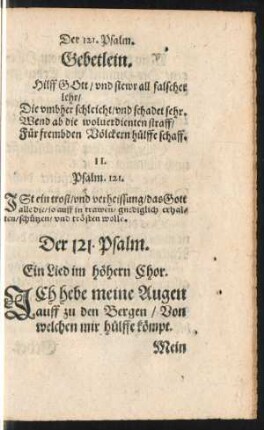 Der 121. Psalm.
Gebetlein.
Hilff GOtt / vnd stewr all falscher
lehr /
Die vmbher schleicht / vnd schadet sehr.
Wend ab die woluerdienten straff /
Für frembden Völckern hülffe schaff.
II.
Psalm. 121.
ISt ein trost / vnd verheissung / das Gott
alle die / so auff in trawen / gnediglich erhal-
ten / schützen / vnd trösten wolle.
Der 121. Psalm.
Ein Lied im höhern Chor.
ICh hebe meine Augen
auff zu den Bergen / Von
welchen mir hülffe kömpt.
Mein